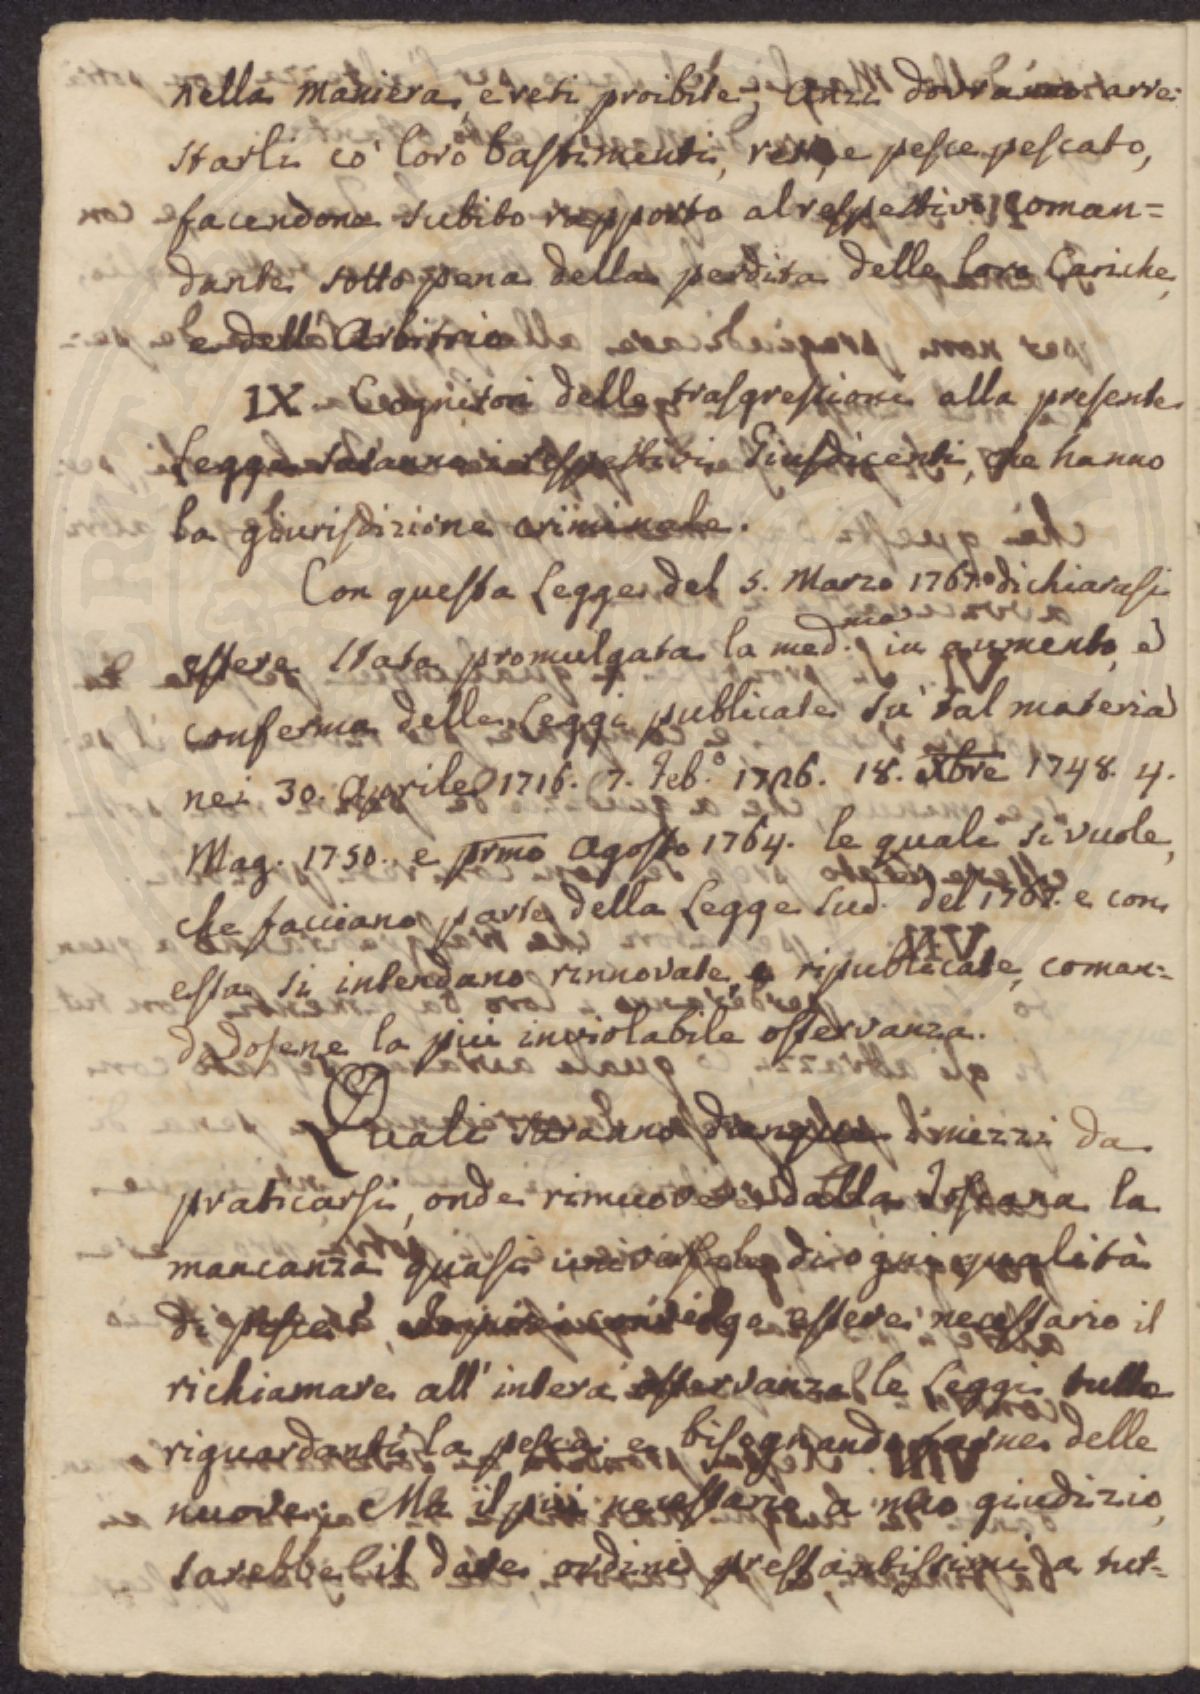 nella maniera, e reti proibite; anzi dovranno arre-
starli co' loro bastimenti, reti, e pesce pescato,
facendone subito rapporto al respettivo Coman=
dante sotto pena della perdita delle loro Cariche,
e dell'Arbitrio
IX. Cognitori delle trasgressioni alla presente
Legge saranno i respettivi Giusdicenti, che hanno
la giurisdizione criminale.
Con questa Legge del 5. Marzo 1767. dichiarasi
essere stata promulgata la med.ma in aumento, e
conferma delle Leggi publicate su tal materia
nei 30. Aprile 1716. 7. Feb.o 1726. 18. Xbre 1748. 4.
Mag. 1750. e prmo Agosto 1764. le quali si vuole,
che facciano parte della Legge sud. del 1767. e con
essa si intendano rinnovate, e ripublicate, coman=
dadosene la più inviolabile osservanza.
Quali saranno dunque i mezzi da
praticarsi, onde rimuovere dalla Toscana la
mancanza quasi universale di ogni qualità
di pesce? essere necessario il
richiamare all'intera osservanza le Leggi tutte
riguardanti la pesca; e bisognando farne delle
nuove; Ma il più necessario a mio giudizio,
sarebbe il dare ordini pressantissimi a tut=